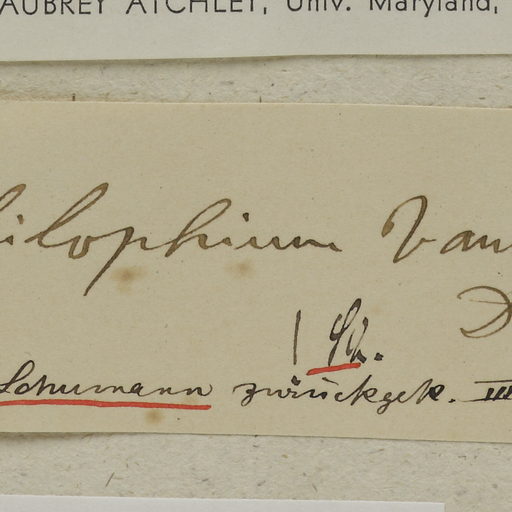 AUBREY ATCHLEY, Univ. Maryland,
ilophium Vau
D
| Sch.
Schumann zurückgek. III